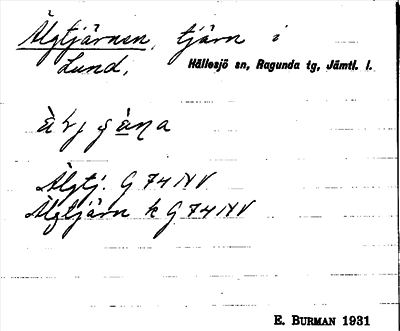 Älgtjärnen, tjärn i
Lund, Hällesjö sn, Ragunda tg, Jämtl. l.
Älgtj. G 74 NV
Älgtjärn k G 74 NV
E. BURMAN 1931